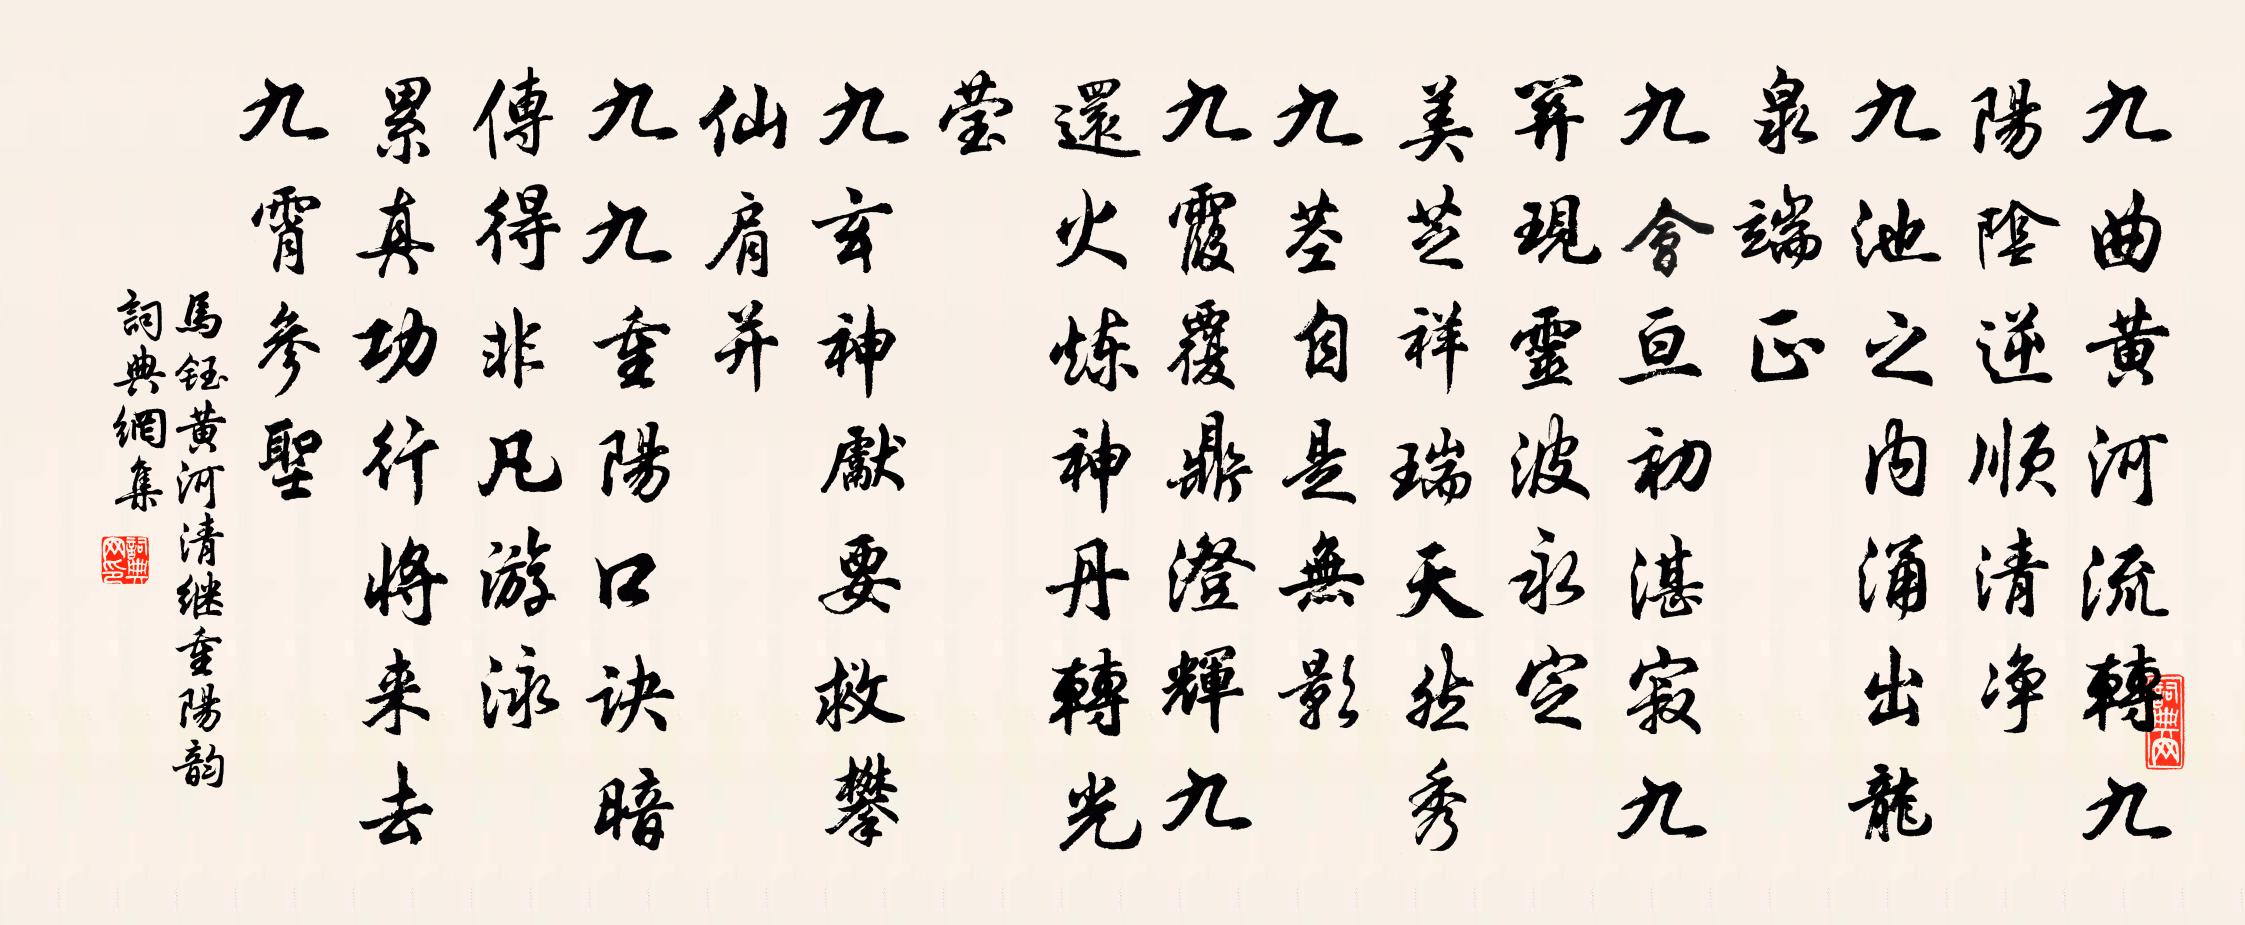 九曲黄河流轉九
陽陰逆順清净
九池之内涌出龍
泉端正
九會亘初湛寂九
開現靈波永定
美芝祥瑞天然秀
九茎自是無影
九霞覆鼎澄輝九
還火炼神丹轉光
莹
九玄神獻要救攀
仙肩并
九九重陽口诀暗
傳得非凡游泳
累真功行将来去
九霄參聖
馬鈺黄河清继重陽韵
詞典網集
詞典网印
詞典网